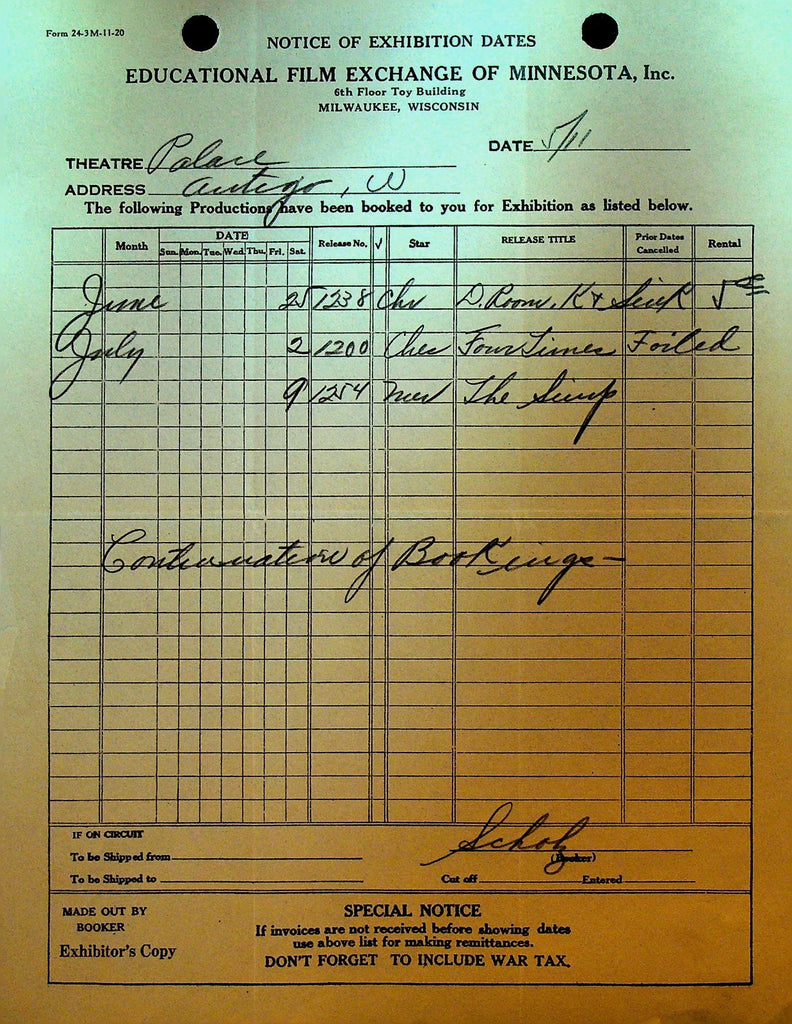 Form 24-3M-11-20
NOTICE OF EXHIBITION DATES
EDUCATIONAL FILM EXCHANGE OF MINNESOTA, Inc.
6th Floor Toy Building
MILWAUKEE, WISCONSIN
THEATRE Palace DATE 5/11
ADDRESS Antigo, W
The following Productions have been booked to you for Exhibition as listed below.
Month DATE Release No. √ Star RELEASE TITLE Prior Dates Cancelled Rental
Sun. Mon. Tue. Wed. Thu. Fri. Sat.
June 25 1238 Chr D. Room, K & Sink 5
July 2 1200 Ches Four Times Foiled
9 1254 Mer The Simp
Continuation of Bookings —
IF ON CIRCUIT
To be Shipped from Scholz
(Booker)
To be Shipped to Cut off Entered
MADE OUT BY
BOOKER
Exhibitor's Copy
SPECIAL NOTICE
If invoices are not received before showing dates
use above list for making remittances.
DON'T FORGET TO INCLUDE WAR TAX.